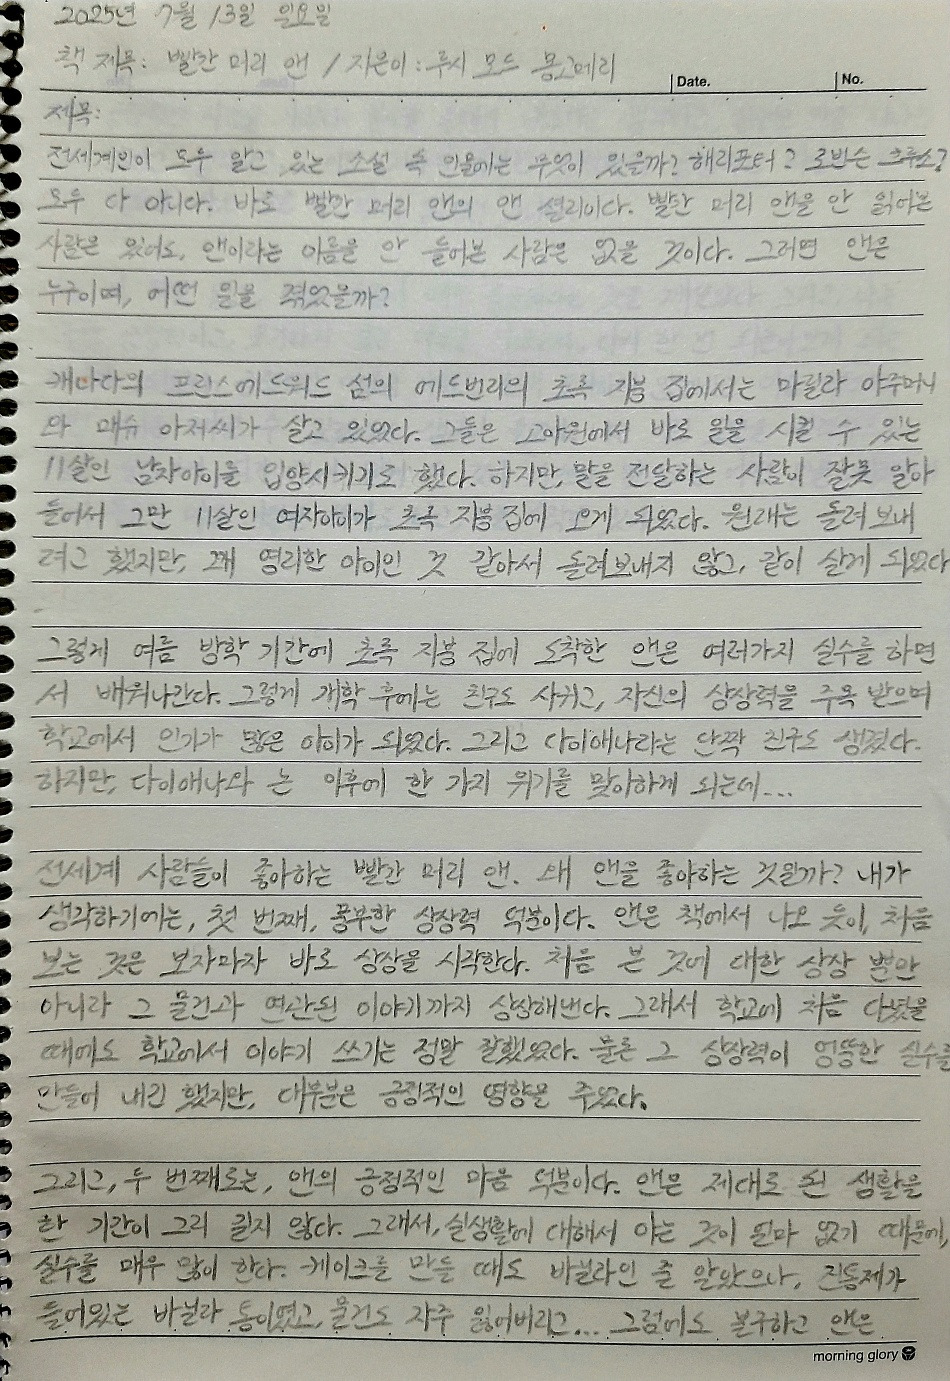 2025년 7월 13일 일요일
책 제목: 빨간 머리 앤 / 지은이 : 루시 모드 몽고메리
Date. No.
제목:
전세계인이 모두 알고 있는 소설 속 인물에는 무엇이 있을까? 해리포터? 로빈슨 크루소?
모두 다 아니다. 바로 빨간 머리 앤의 앤 셜리이다. 빨간 머리 앤을 안 읽어본
사람은 있어도, 앤이라는 이름을 안 들어본 사람은 없을 것이다. 그러면 앤은
누구이며, 어떤 일을 겪었을까?
캐나다의 프린스에드워드 섬의 에드번리의 초록 지붕 집에서는 마릴라 아주머니
와 매슈 아저씨가 살고 있었다. 그들은 고아원에서 바로 일을 시킬 수 있는
11살인 남자아이를 입양시키기로 했다. 하지만, 말을 전달하는 사람이 잘못 알아
들어서 그만 11살인 여자아이가 초록 지붕 집에 오게 되었다. 원래는 돌려 보내
려고 했지만, 꽤 영리한 아이인 것 같아서 돌려보내지 않고, 같이 살게 되었다
그렇게 여름 방학 기간에 초록 지붕 집에 도착한 앤은 여러가지 실수를 하면
서 배워나간다. 그렇게 개학 후에는 친구도 사귀고, 자신의 상상력을 주목 받으며
학교에서 인기가 많은 아이가 되었다. 그리고 다이애나라는 단짝 친구도 생겼다.
하지만, 다이애나와 논 이후에 한 가지 위기를 맞이하게 되는데...
전세계 사람들이 좋아하는 빨간 머리 앤. 왜 앤을 좋아하는 것일까? 내가
생각하기에는, 첫 번째, 풍부한 상상력 덕분이다. 앤은 책에서 나오 듯이, 처음
보는 것은 보자마자 바로 상상을 시작한다. 처음 본 것에 대한 상상 뿐만
아니라 그 물건과 연관된 이야기까지 상상해낸다. 그래서 학교에 처음 다녔을
때에도 학교에서 이야기 쓰기는 정말 잘했었다. 물론 그 상상력이 엉뚱한 실수를
만들어 내긴 했지만, 대부분은 긍정적인 영향을 주었다.
그리고, 두 번째로는, 앤의 긍정적인 마음 덕분이다. 앤은 제대로 된 생활을
한 기간이 그리 길지 않다. 그래서, 실생활에 대해서 아는 것이 얼마 없기 때문에,
실수를 매우 많이 한다. 케이크를 만들 때도 바닐라인 줄 알았으나, 진통제가
들어있는 바닐라 통이였고, 물건도 자주 잃어버리고... 그럼에도 불구하고 앤은
morning glory